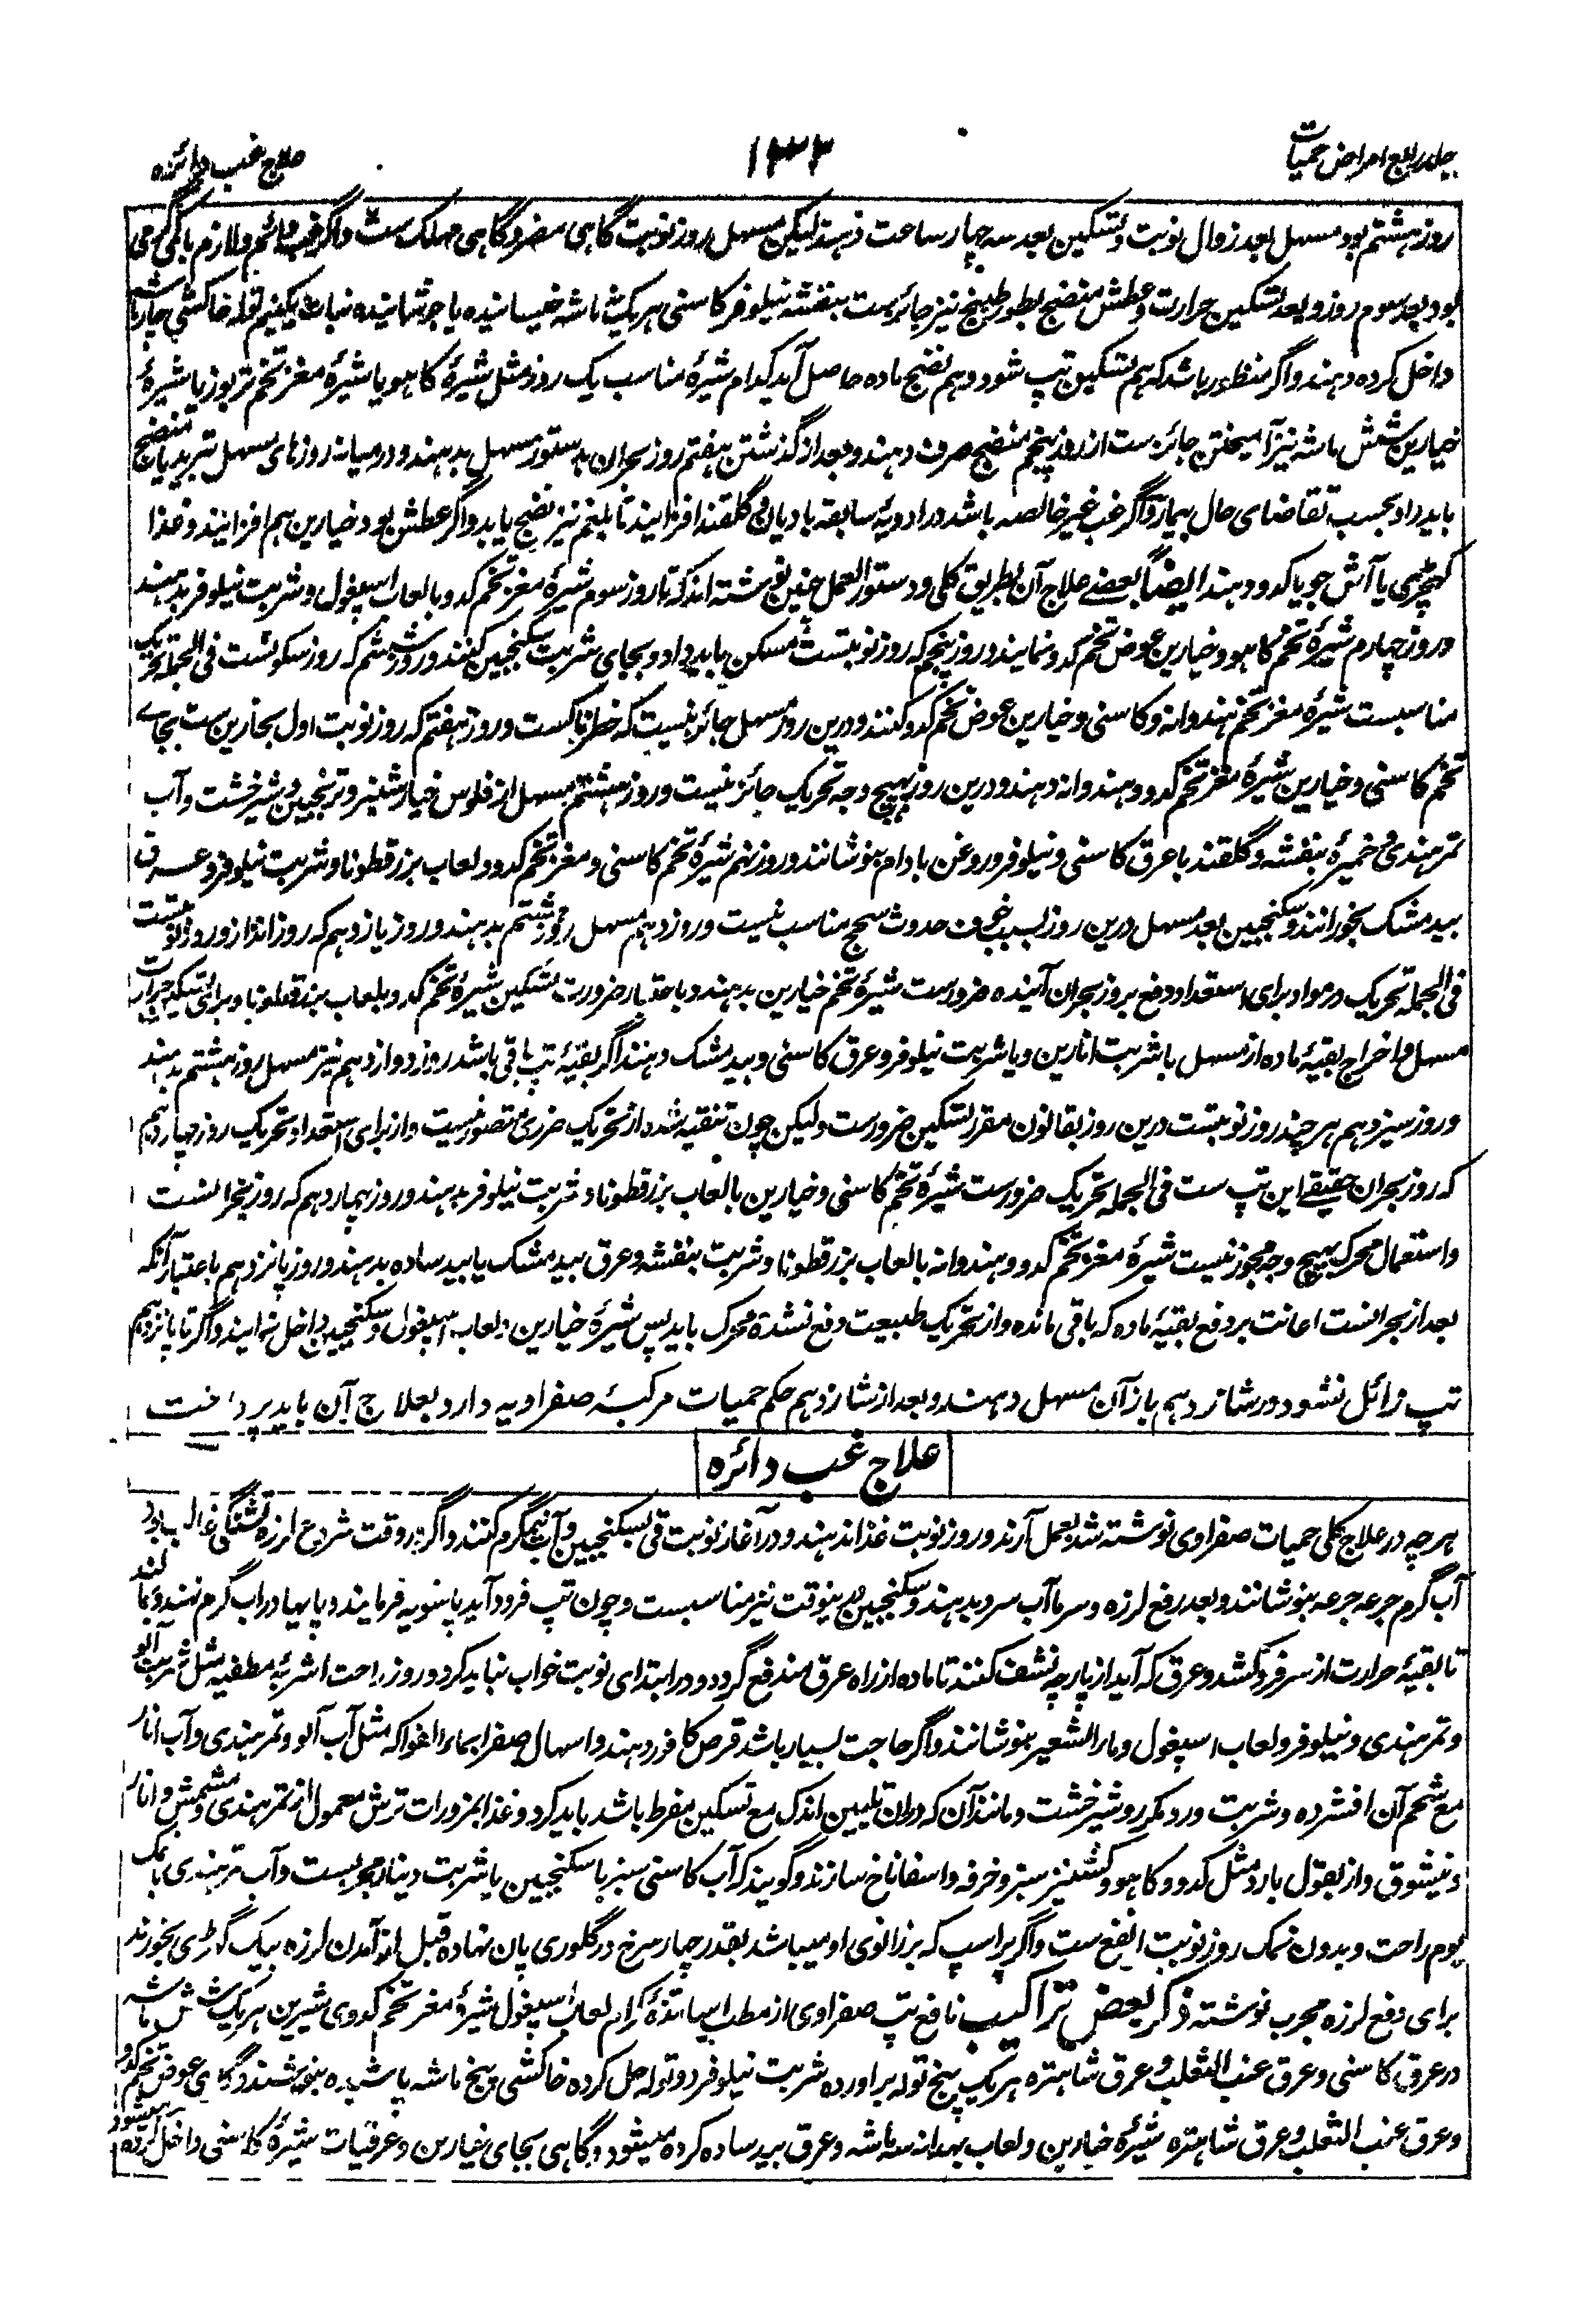 جلد رابع امراض حمیات
۱۳۳
علاج غب دائره
روز هشتم بود مسهل بعد زوال نوبت و تسکین بعد سه چهار ساعت دهند لیکن مسهل روز نوبت گاهی مضر و گاهی مهلک ست و اگر غب دائم و لازم با کمی گرمی
بود بعد سوم روز و بعد تسکین حرارت و عطش منضج بطور طبیخ نیز جائزست بنفشه نیلوفر کاسنی هر یک شش ماشه خیسانیده یا جوشانیده نبات یکنیم توله خاکشی چار ماشه
داخل کرده دهند و اگر منظور باشد که هم تسکین تپ شود و هم نضج ماده حاصل آید کدام شیرهٔ مناسب یک روز مثل شیرهٔ کاهو یا شیرهٔ مغز تخم تربوز یا شیرهٔ
خیارین شش ماشه نیز آمیختن جائزست از روز پنجم منضج صرف دهند و بعد از گذشتن هفتم روز بحران بدستور مسهل بدهند و در میانه روزهای مسهل تبرید یا منضج
باید داد بحسب تقاضای حال بیمار و اگر غب غیر خالصه باشد در ادویهٔ سابقه بادیان و گلقند افزایند تا بلغم نیز نضج یابد و اگر عطش بود خیارین هم افزایند و غذا
کهچڑی یا آش جو یا کدو دهند ایضاً بعضے علاج آن بطریق کلی و دستور العمل چنین نوشته اند که تا روز سوم شیرهٔ مغز تخم کدو با لعاب اسپغول و شربت نیلوفر بدهند
و روز چهارم شیرهٔ تخم کاهو و خیارین عوض تخم کدو نمایند و روز پنجم که روز نوبتست مسکن باید داد و بجای شربت سکنجبین کنند و روز ششم که روز سکونست فی الجمله تحریک
مناسبست شیرهٔ مغز تخم هندوانه و کاسنی و خیارین عوض تخم کدو کنند و درین روز مسهل جائز نیست که خطرناکست و روز هفتم که روز نوبت اول بحارین ست بجاے
تخم کاسنی و خیارین شیرهٔ مغز تخم کدو و هندوانه دهند و درین روز بهیچ وجه تحریک جائز نیست و روز هشتم مسهل از فلوس خیارشنبر و ترنجبین و شیرخشت و آب
تمر هندی و خمیرهٔ بنفشه و گلقند با عرق کاسنی و نیلوفر و روغن بادام بنوشانند و روز نهم شیرهٔ تخم کاسنی و مغز تخم کدو و لعاب بزرقطونا و شربت نیلوفر و عرق
بیدمشک بخورانند و سکنجبین بعد مسهل درین روز بسبب خوف حدوث سحج مناسب نیست و روز دهم مسهل روز هشتم بدهند و روز یازدهم که روز انذار و روز نوبتست
فی الجمله تحریک در مواد برای استعداد دفع بروز بحران آینده ضرورست شیرهٔ تخم خیارین بدهند و باعتبار ضرورت تسکین شیرهٔ تخم کدو بلعاب بزرقطونا و برای تسکین حرارت
مسهل و اخراج بقیهٔ ماده از مسهل با شربت انارین و یا شربت نیلوفر و عرق کاسنی و بیدمشک دهند اگر بقیهٔ تپ باقی باشد روز دوازدهم نیز مسهل روز هشتم بدهند
و روز سیزدهم هر چند روز نوبتست درین روز بقانون مقرر تسکین ضرورست و لیکن چون تنقیه شده از تحریک ضرری متصور نیست و از برای استعداد تحریک روز چهاردهم
که روز بحران حقیقے این تپ ست فی الجمله تحریک ضرورست شیرهٔ تخم کاسنی و خیارین با لعاب بزرقطونا و شربت نیلوفر بدهند و روز چهاردهم که روز بحرانست
و استعمال محرک بهیچ وجه مجوز نیست شیرهٔ مغز تخم کدو و هندوانه با لعاب بزرقطونا و شربت بنفشه و عرق بیدمشک یا بید ساده بدهند و روز پانزدهم باعتبار آنکه
بعد از بحرانست اعانت بر دفع بقیهٔ ماده که باقی مانده و از تحریک طبیعت دفع نشده محرک باید پس شیرهٔ خیارین و لعاب اسپغول و سکنجبین داخل نمایند و اگر تا پانزدهم
تپ زائل نشود در شانزدهم باز آن مسهل دهند و بعد از شانزدهم حکم حمیات مرکبهٔ صفراویه دارد بعلاج آن باید پرداخت
علاج غب دائره
هر چه در علاج کلی حمیات صفراوی نوشته شد بعمل آرند و روز نوبت غذا ندهند و در آغاز نوبت قی بسکنجبین و آب نیمگرم کنند و اگر در وقت شروع لرزه تشنگی غالب بود
آب گرم جرعه جرعه بنوشانند و بعد رفع لرزه و سرما آب سرد بدهند و سکنجبین درینوقت نیز مناسبست و چون تپ فرود آید پاشویه فرمایند و پایها در آب گرم نهند و بمالند
تا بقیهٔ حرارت از سر فرو کشد و عرق که آید از پارچه نشف کنند تا ماده از راه عرق مندفع گردد و در ابتدای نوبت خواب نباید کرد و روز راحت اشربهٔ مطفیه مثل شربت آلو
و تمر هندی و نیلوفر و لعاب اسپغول و ماءالشعیر بنوشانند و اگر حاجت بسیار باشد قرص کافور دهند و اسهال صفرا بماءالفواکه مثل آب آلو و تمر هندی و آب انار
مع شحم آن افشرده و شربت ورد مکرر و شیرخشت و مانند آن که دران تلیین اندک مع تسکین مفرط باشد باید کرد و غذا بمزورات ترش معمول از تمر هندی و مشمش و انار
و نیشوق و از بقول بارد مثل کدو و کاهو و کشنیز سبز و خرفه و اسفاناخ سازند و گویند که آب کاسنی سبز با سکنجبین یا شربت دینار مجربست و آب تمر هندی با نمک
یوم راحت و بدون نمک روز نوبت انفع ست و اگر پر اسپ که بر زانوی او میباشد بقدر چهار سرخ در گلوری پان نهاده قبل از آمدن لرزه بیک گهڑی بخورند
برای دفع لرزه مجرب نوشته ذکر بعض تراکیب نافع تپ صفراوی از مطب اساتذهٔ کرام لعاب اسپغول شیرهٔ مغز تخم کدوی شیرین هر یک شش ماشه
در عرق کاسنی و عرق عنب الثعلب و عرق شاهتره هر یک پنج توله برآورده شربت نیلوفر دو توله حل کرده خاکشی پنج ماشه پاشیده بنوشند و گاهی عوض تخم کدو
و عرق عنب الثعلب و عرق شاهتره شیرهٔ خیارین و لعاب بهدانه سه ماشه و عرق بید ساده کرده میشود و گاهی بجای خیارین و عرقیات شیرهٔ کاسنی داخل کرده میشود